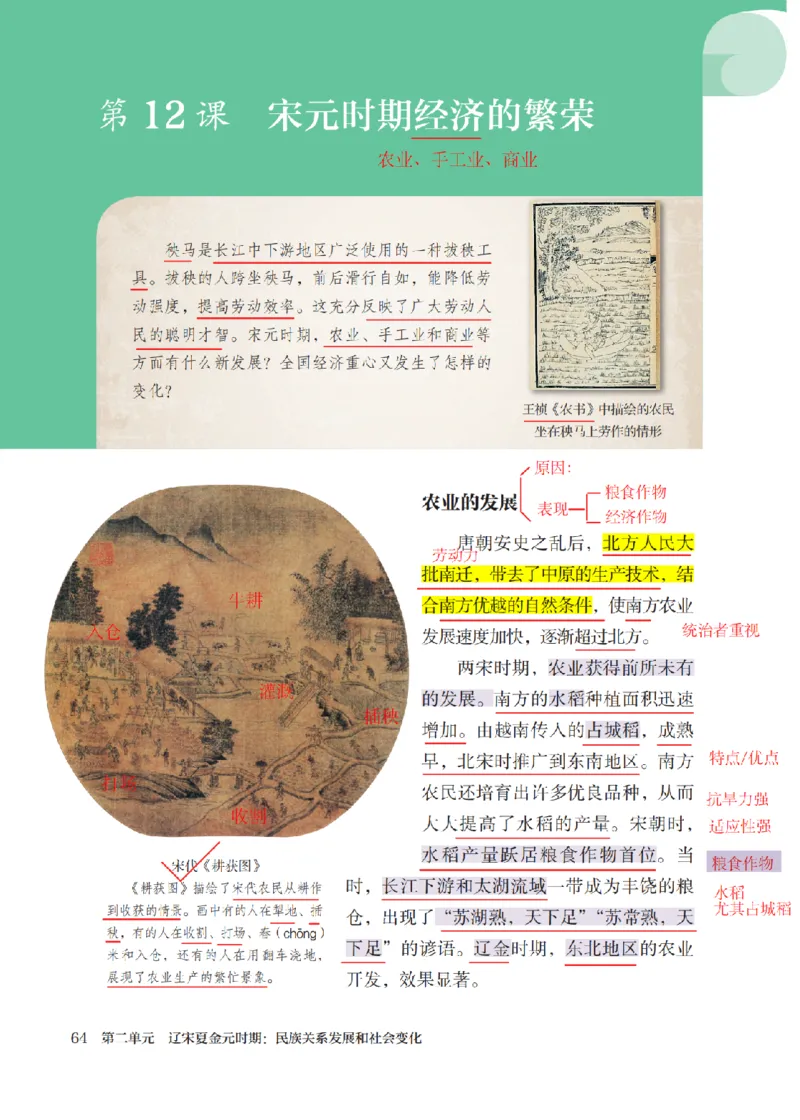 第12课 宋元时期经济的繁荣
农业、手工业、商业
秧马是长江中下游地区广泛使用的一种拔秧工
具。拔秧的人跨坐秧马，前后滑行自如，能降低劳
动强度，提高劳动效率。这充分反映了广大劳动人
民的聪明才智。宋元时期，农业、手工业和商业等
方面有什么新发展？全国经济重心又发生了怎样的
变化？
王祯《农书》中描绘的农民
坐在秧马上劳作的情形
牛耕
入仓
灌溉
插秧
打场
收割
宋代《耕获图》
《耕获图》描绘了宋代农民从耕作
到收获的情景。画中有的人在犁地、插
秧，有的人在收割、打场、舂（chōng）
米和入仓，还有的人在用翻车浇地，
展现了农业生产的繁忙景象。
农业的发展
原因：
表现
粮食作物
经济作物
唐朝安史之乱后，北方人民大
劳动力
批南迁，带去了中原的生产技术，结
合南方优越的自然条件，使南方农业
发展速度加快，逐渐超过北方。
统治者重视
两宋时期，农业获得前所未有
的发展。南方的水稻种植面积迅速
增加。由越南传入的占城稻，成熟
早，北宋时推广到东南地区。南方
特点/优点
农民还培育出许多优良品种，从而
抗旱力强
大大提高了水稻的产量。宋朝时，
适应性强
水稻产量跃居粮食作物首位。当
粮食作物
时，长江下游和太湖流域一带成为丰饶的粮
水稻
尤其占城稻
仓，出现了“苏湖熟，天下足”“苏常熟，天
下足”的谚语。辽金时期，东北地区的农业
开发，效果显著。
64 第二单元 辽宋夏金元时期：民族关系发展和社会变化